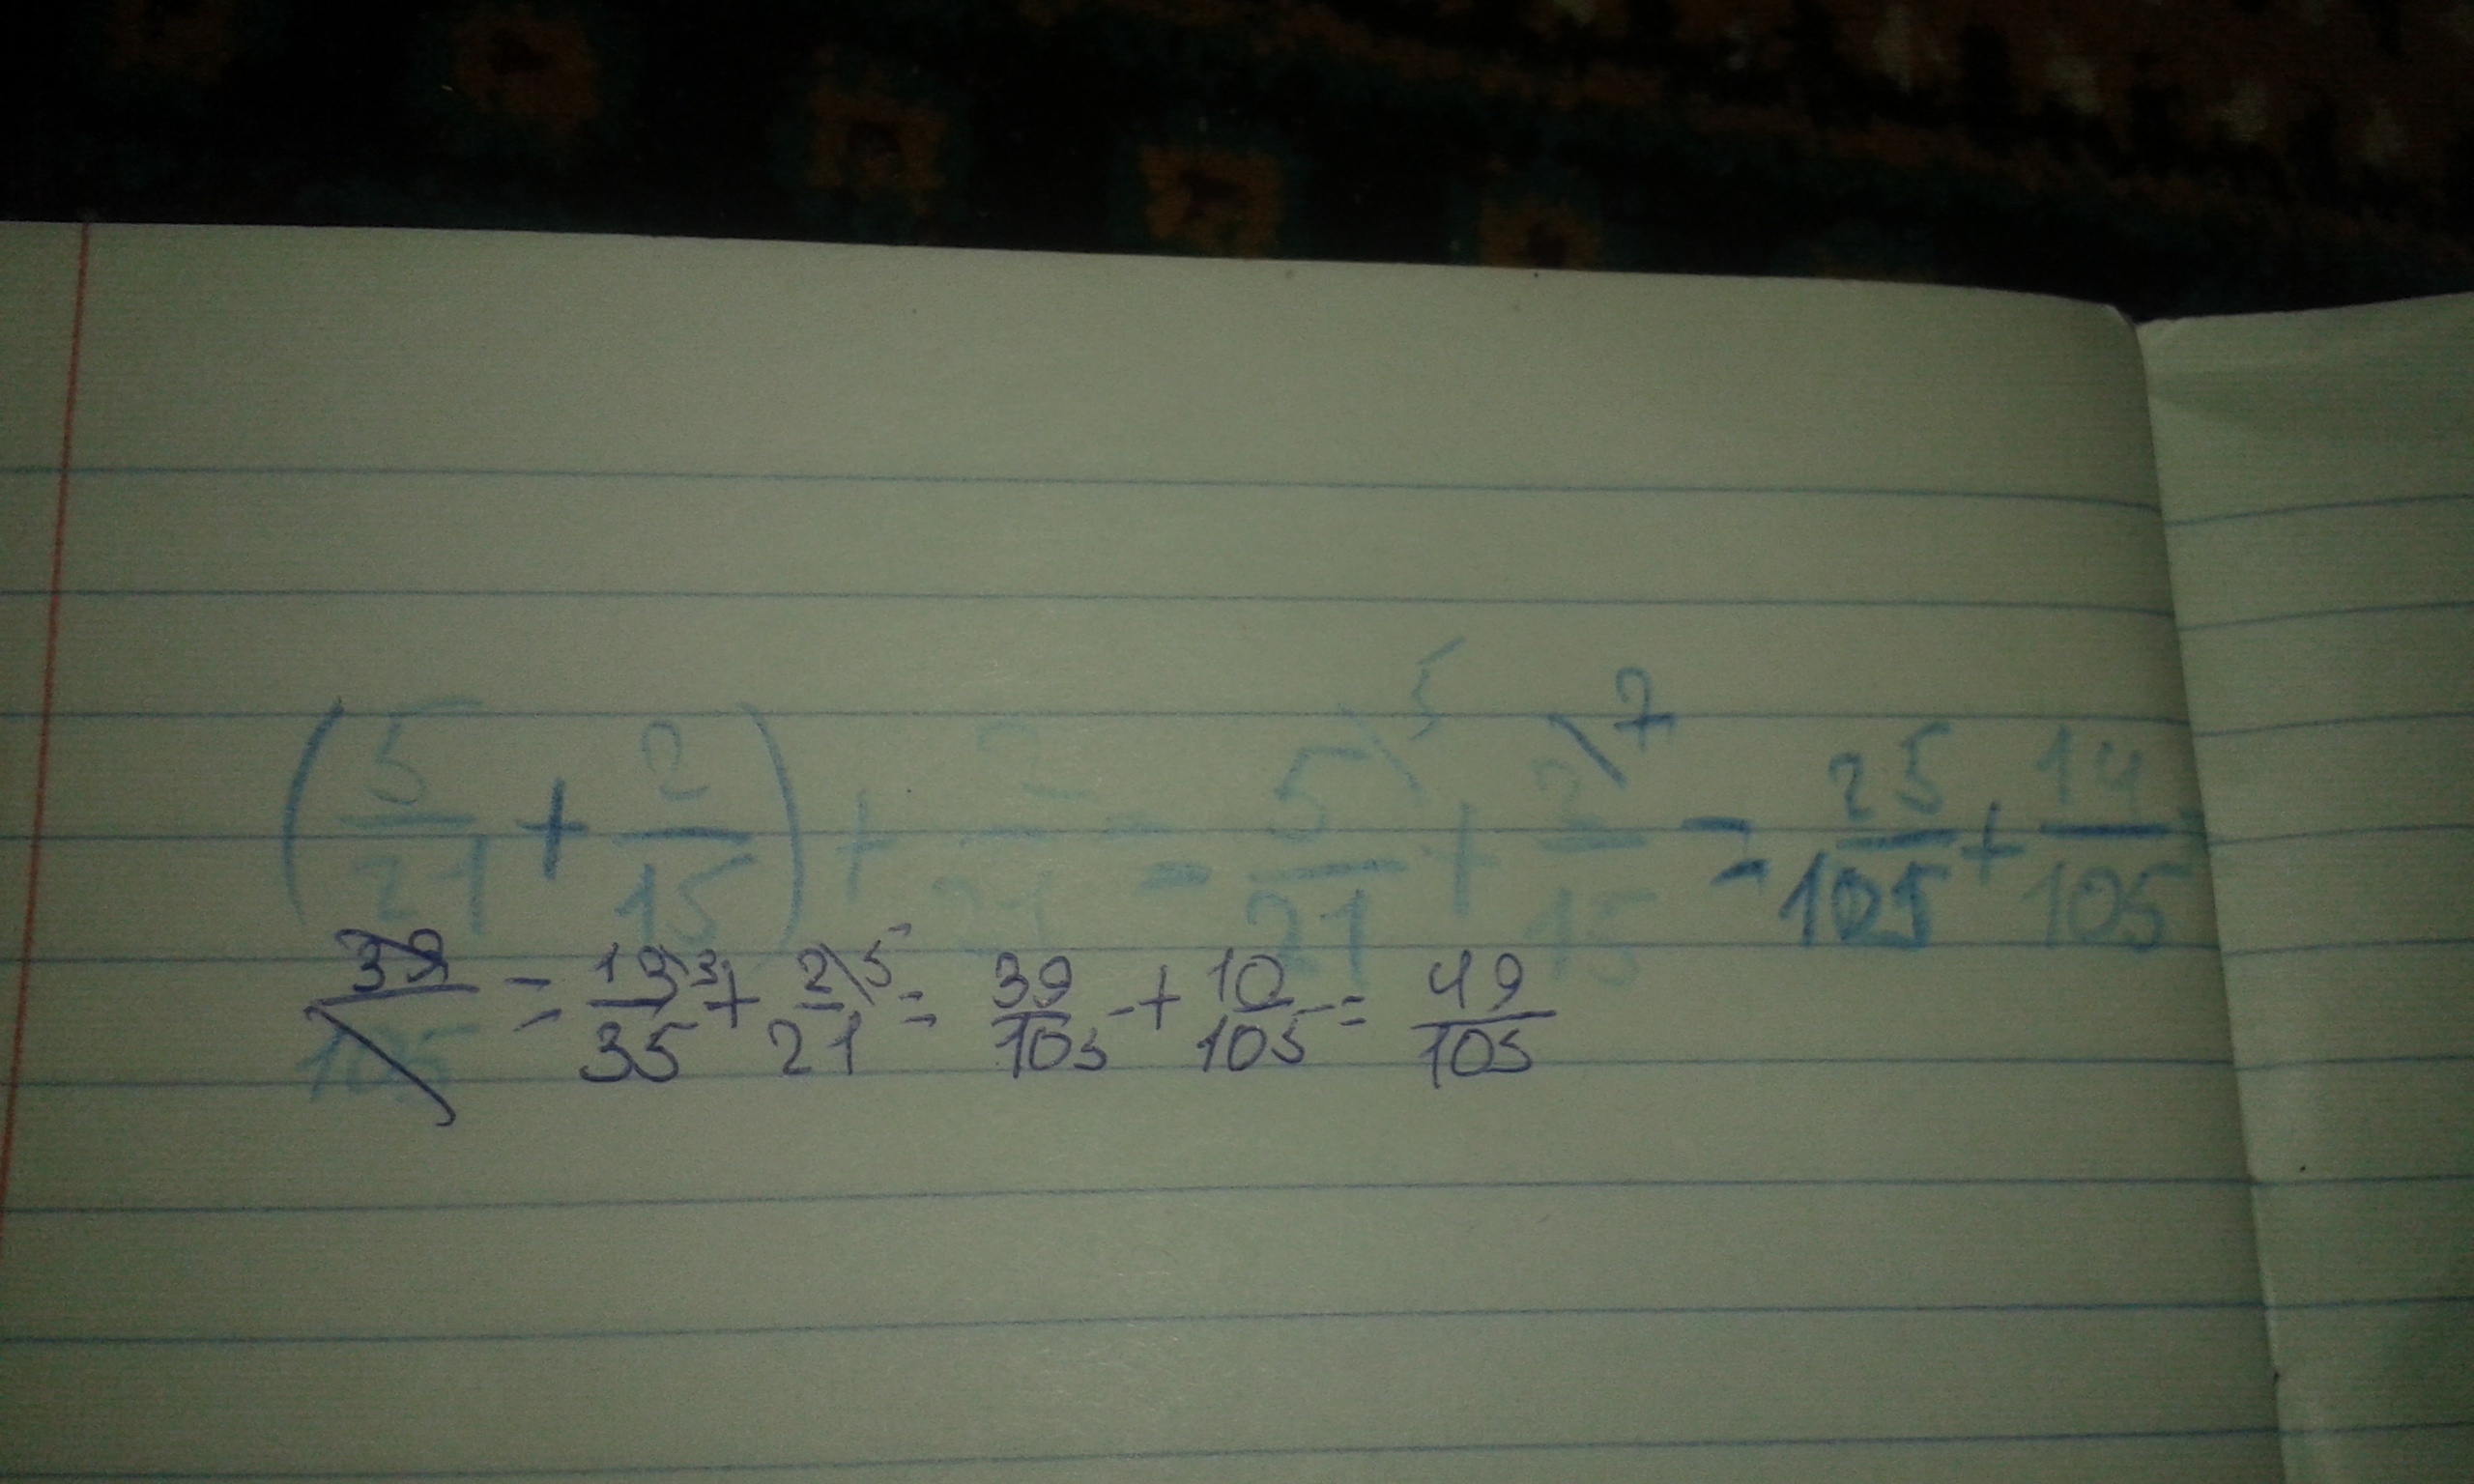 (5/21 + 2/15) + 2/21 = 5\5/21 + 2\7/15 = 25/105 + 14/105 =
39/105 = 13\3/35 + 2\5/21 = 39/105 + 10/105 = 49/105